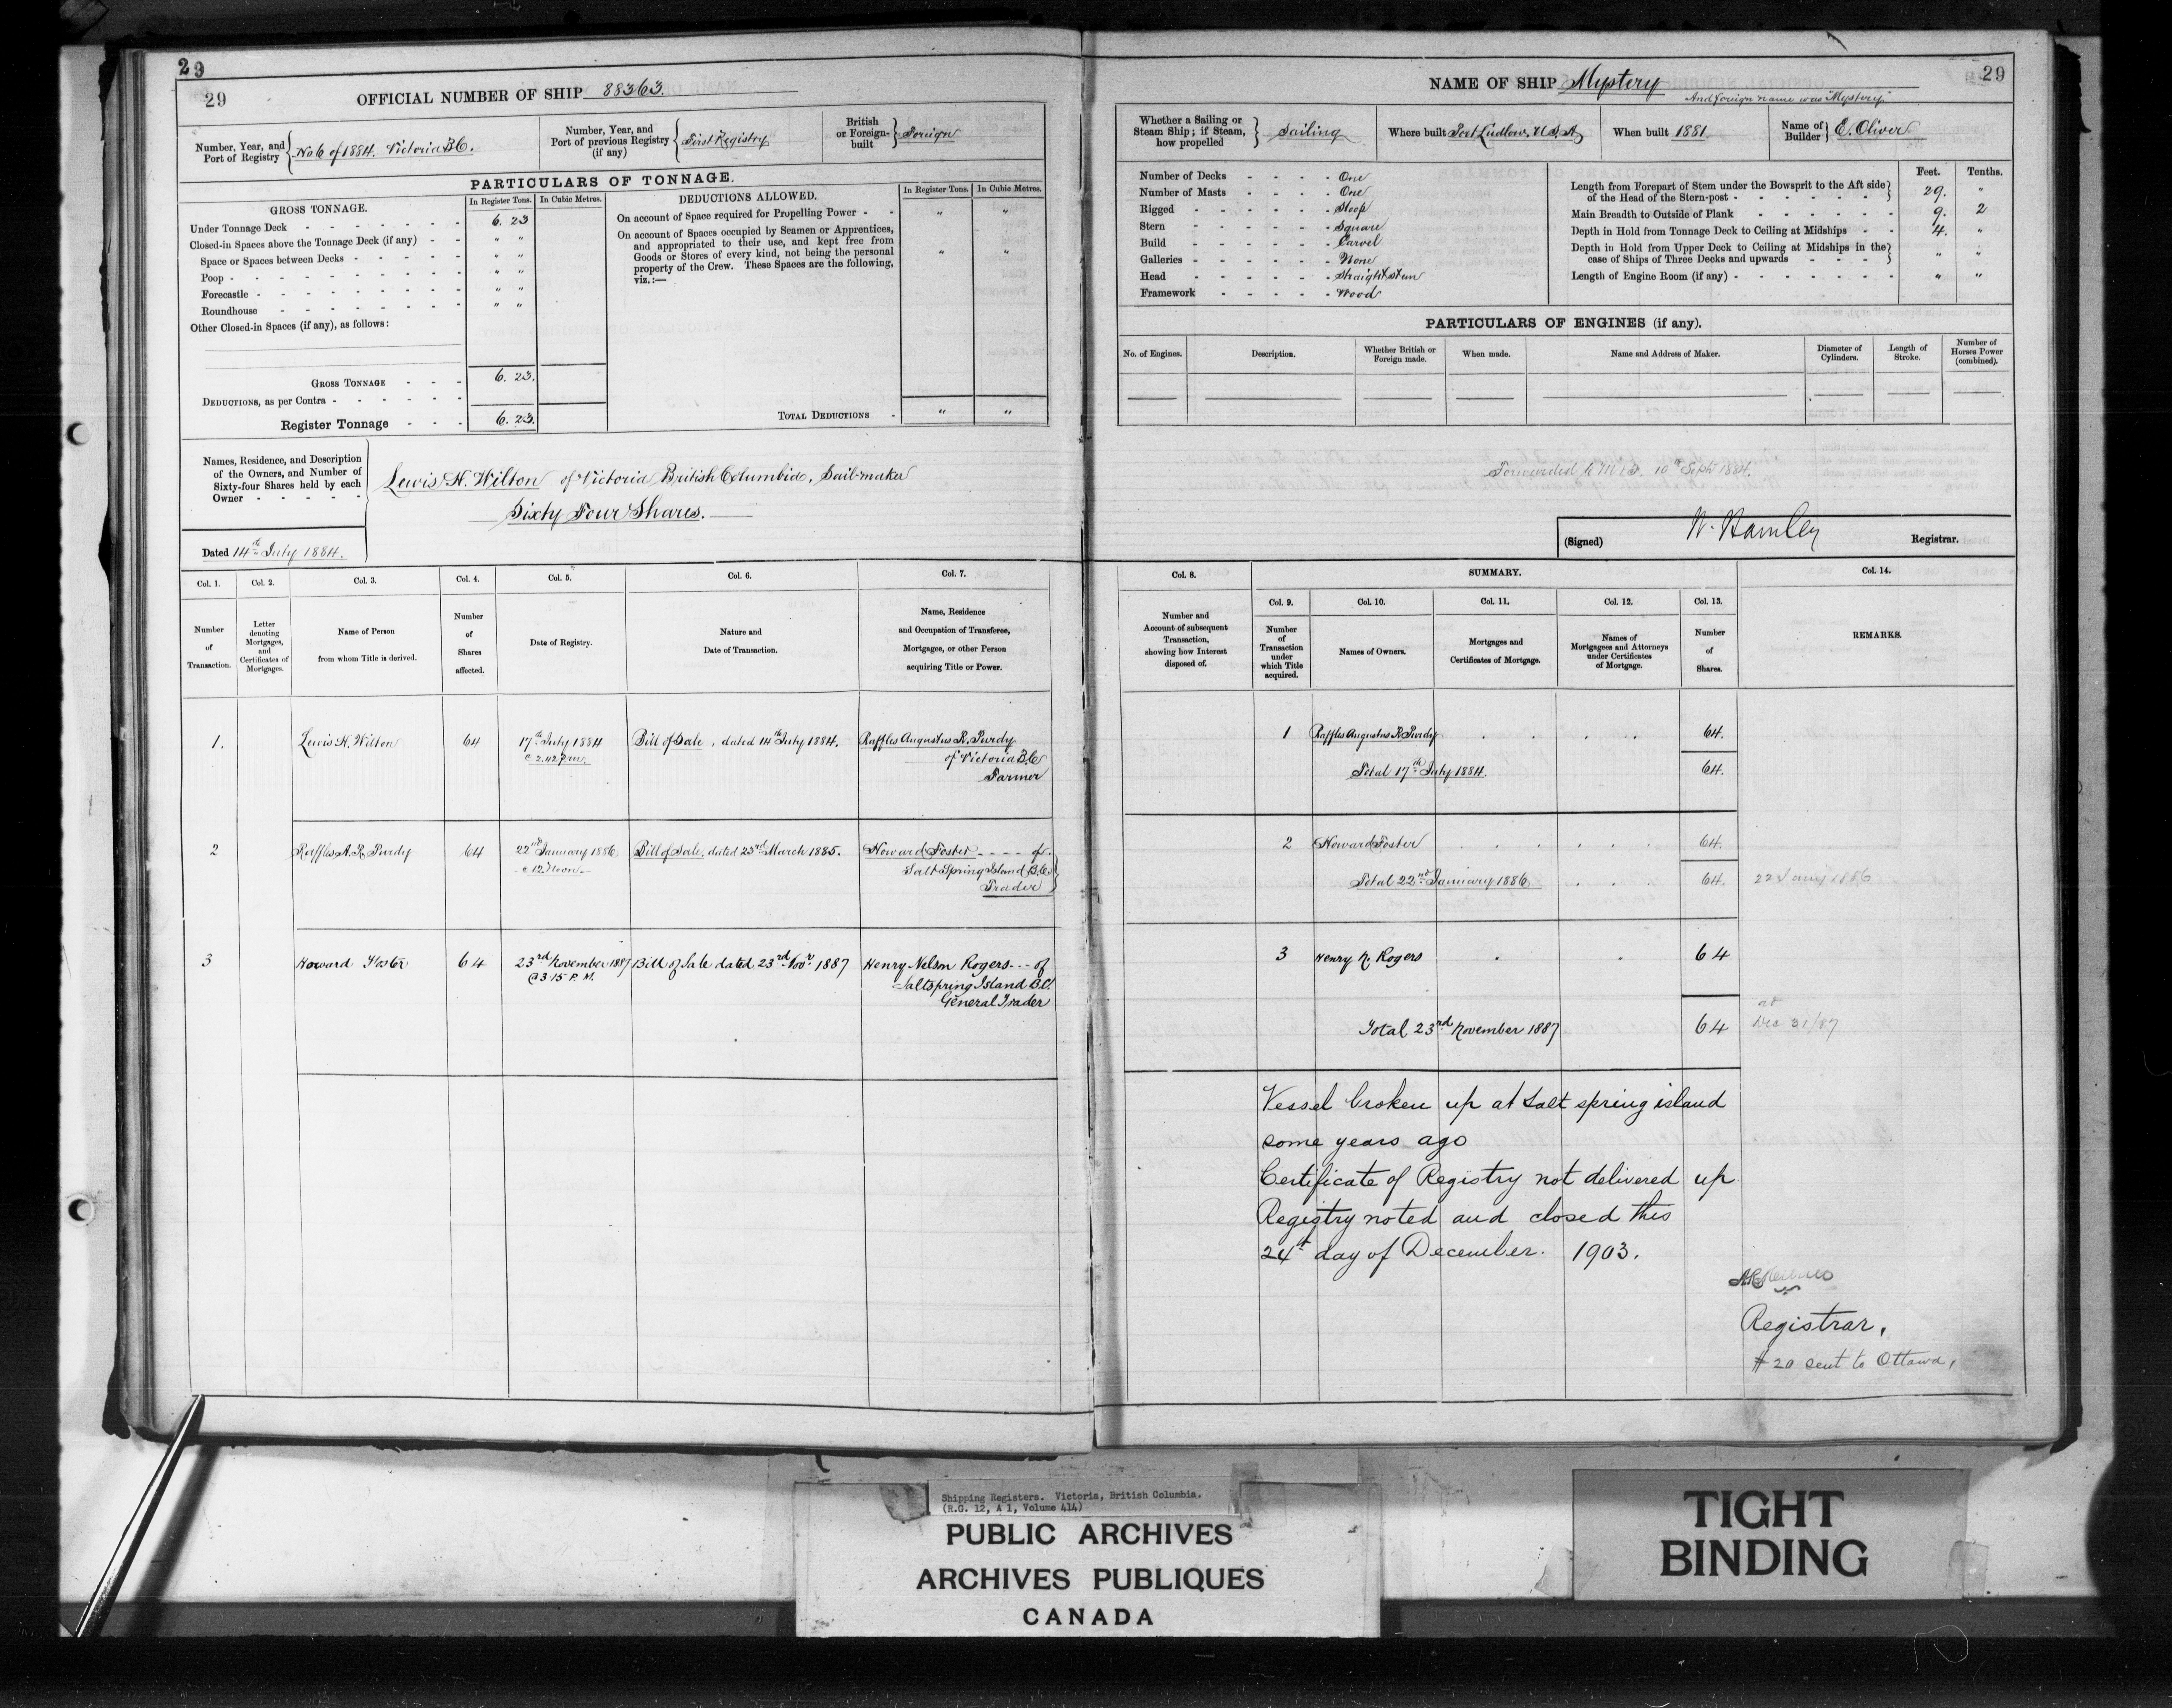 29
29
OFFICIAL NUMBER OF SHIP 88363.
Number, Year, and Port of Registry } No 6 of 1884. Victoria B.C.
Number, Year, and Port of previous Registry (if any) { First Registry
British or Foreign-built } Foreign
PARTICULARS OF TONNAGE.
GROSS TONNAGE.
In Register Tons. In Cubic Metres.
Under Tonnage Deck - - - 6. 23
Closed-in Spaces above the Tonnage Deck (if any) - - " "
Space or Spaces between Decks - - - " "
Poop - - - " "
Forecastle - - - " "
Roundhouse - - - " "
Other Closed-in Spaces (if any), as follows:
GROSS TONNAGE - - - 6. 23.
DEDUCTIONS, as per Contra - - -
Register Tonnage - - - 6. 23.
DEDUCTIONS ALLOWED.
In Register Tons. In Cubic Metres.
On account of Space required for Propelling Power - - " "
On account of Spaces occupied by Seamen or Apprentices,
and appropriated to their use, and kept free from
Goods or Stores of every kind, not being the personal
property of the Crew. These Spaces are the following,
viz.:— " "
TOTAL DEDUCTIONS - " "
Names, Residence, and Description
of the Owners, and Number of
Sixty-four Shares held by each
Owner - - - - -
Lewis H. Wilton of Victoria British Columbia, Sail-maker
Sixty Four Shares.
Dated 14th July 1884.
Col. 1. Col. 2. Col. 3. Col. 4. Col. 5. Col. 6. Col. 7.
Number of Transaction.
Letter denoting Mortgages, and Certificates of Mortgages.
Name of Person from whom Title is derived.
Number of Shares affected.
Date of Registry.
Nature and Date of Transaction.
Name, Residence and Occupation of Transferee, Mortgagee, or other Person acquiring Title or Power.
1. Lewis H. Wilton 64 17th July 1884 Bill of Sale, dated 14th July 1884. Raffles Augustus R. Purdy
@ 2.42 p.m. of Victoria B.C.
Farmer
2 Raffles A. R. Purdy 64 22nd January 1886 Bill of Sale, dated 23rd March 1885. Howard Foster - - - - of
@ 12 Noon Salt Spring Island B.C.
Trader
3 Howard Foster 64 23rd November 1887 Bill of Sale dated 23rd Novr 1887 Henry Nelson Rogers - - - of
@ 3.15 P.M. Saltspring Island B.C.
General Trader
29
NAME OF SHIP Mystery
And foreign name was "Mystery."
Whether a Sailing or Steam Ship; if Steam, how propelled } Sailing
Where built Port Ludlow, U.S.A.
When built 1881.
Name of Builder } E. Oliver
Number of Decks - - - - One
Number of Masts - - - - One
Rigged - - - - Sloop
Stern - - - - Square
Build - - - - Carvel
Galleries - - - - None
Head - - - - Straight stem
Framework - - - - Wood
Feet. Tenths.
Length from Forepart of Stem under the Bowsprit to the Aft side
of the Head of the Stern-post - - - 29. "
Main Breadth to Outside of Plank - - - 9. 2
Depth in Hold from Tonnage Deck to Ceiling at Midships - - 4. "
Depth in Hold from Upper Deck to Ceiling at Midships in the
case of Ships of Three Decks and upwards - - - " "
Length of Engine Room (if any) - - - " "
PARTICULARS OF ENGINES (if any).
No. of Engines. Description. Whether British or Foreign made. When made. Name and Address of Maker. Diameter of Cylinders. Length of Stroke. Number of Horses Power (combined).
Forwarded to 10th Septr 1884.
(Signed) W. Hamley Registrar.
Col. 8. SUMMARY. Col. 14.
Col. 9. Col. 10. Col. 11. Col. 12. Col. 13.
Number and Account of subsequent Transaction, showing how Interest disposed of.
Number of Transaction under which Title acquired.
Names of Owners.
Mortgages and Certificates of Mortgage.
Names of Mortgagees and Attorneys under Certificates of Mortgage.
Number of Shares.
REMARKS.
1 Raffles Augustus R. Purdy 64.
Total 17th July 1884. 64.
2 Howard Foster 64.
Total 22nd January 1886 64. 22 Jany 1886
3 Henry N. Rogers 64
at
Total 23rd November 1887 64 Dec 31/87
Vessel broken up at Salt spring island
some years ago
Certificate of Registry not delivered up
Registry noted and closed this
24t day of December. 1903.
Registrar,
# 20 sent to Ottawa,
Shipping Registers. Victoria, British Columbia.
(R.G. 12, A 1, Volume 414)
PUBLIC ARCHIVES
ARCHIVES PUBLIQUES
CANADA
TIGHT
BINDING